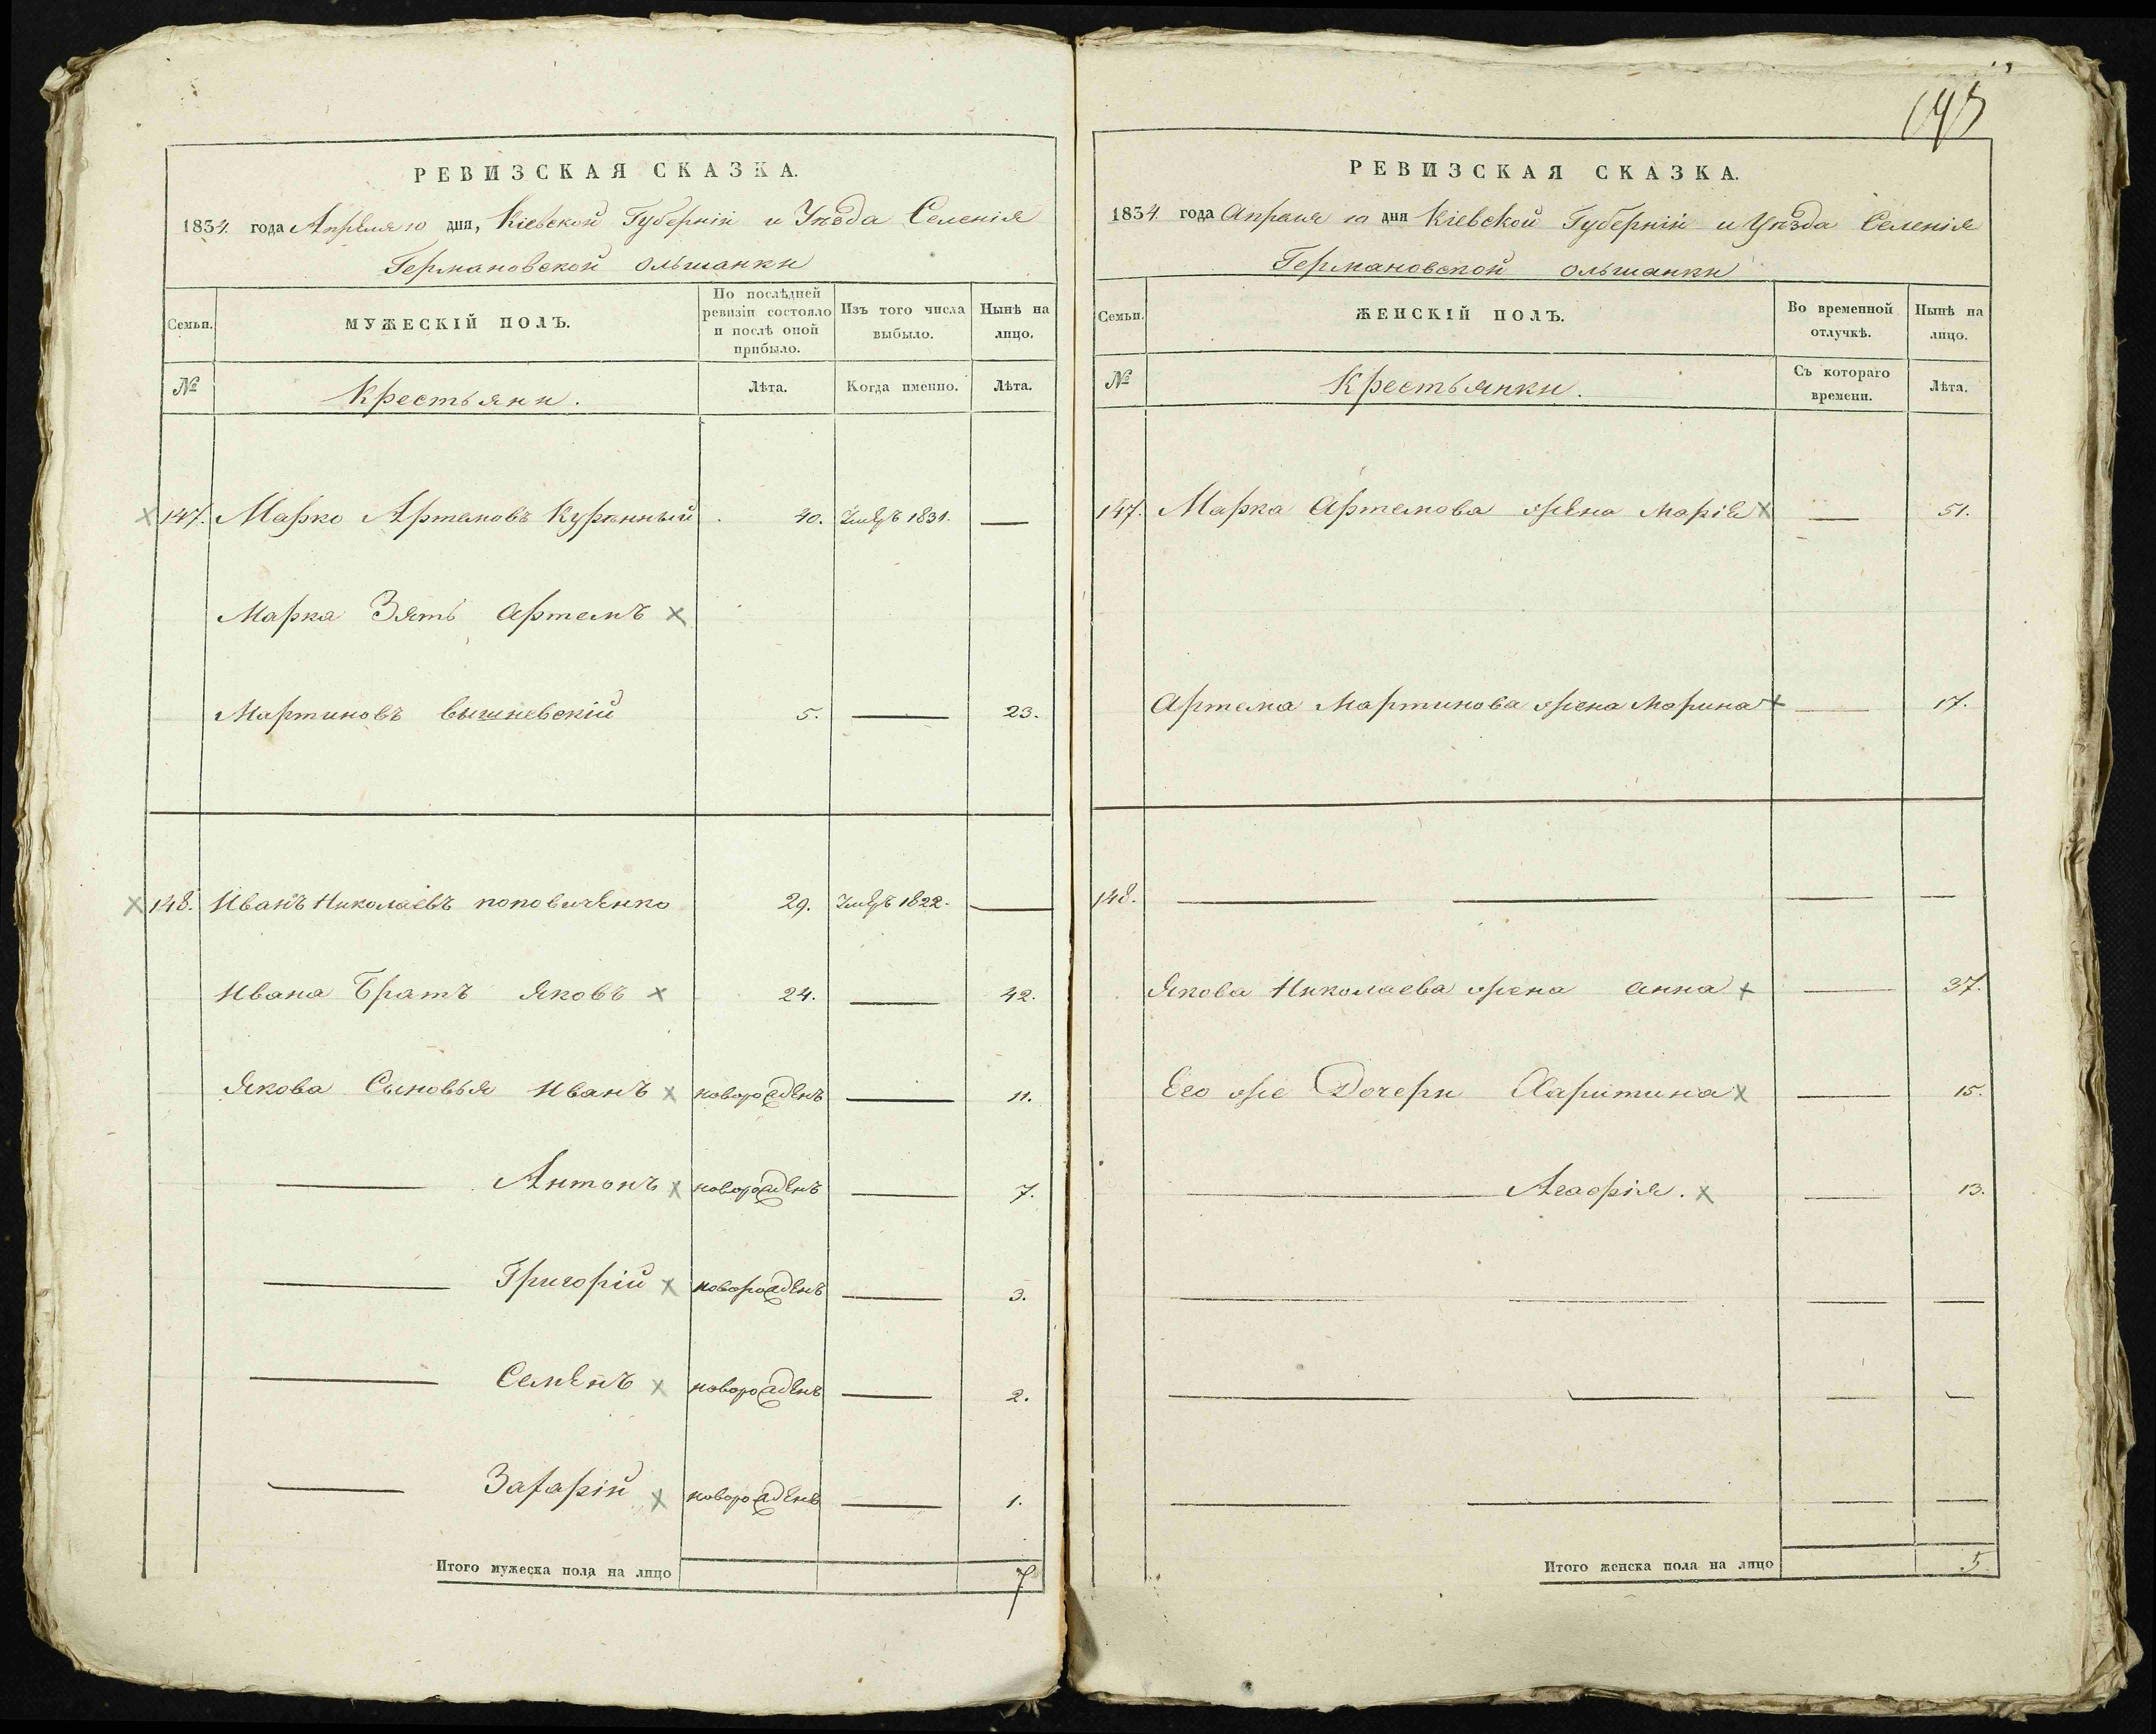 РЕВИЗСКАЯ СКАЗКА.
1834. года Апреля 10 дня, Кіевской Губерніи и Уѣзда Селенія
Германовской Ольшанки
Семьи.
МУЖЕСКІЙ ПОЛЪ.
По послѣдней ревизіи состояло и послѣ оной прибыло.
Изъ того числа выбыло.
Нынѣ на лицо.
№
Крестьяни.
Лѣта.
Когда именно.
Лѣта.
147. Марко Артемовъ Курѣнный 40. 1831. —
Марка Зять Артемъ
Мартиновъ вышневскій 5. — 23.
148. Иванъ Николаевъ поповиченко 29. 1822. —
Ивана Братъ Яковъ 24. — 42.
Якова Сыновья Иванъ новорожденъ — 11.
— Антонъ новорожденъ — 7.
— Григорій новорожденъ — 3.
— Семенъ новорожденъ — 2.
— Захарій новорожденъ — 1.
Итого мужеска пола на лицо 7
РЕВИЗСКАЯ СКАЗКА.
1834. года Апреля 10 дня Кіевской Губерніи и Уѣзда Селенія
Германовской Ольшанки
Семьи.
ЖЕНСКІЙ ПОЛЪ.
Во временной отлучкѣ.
Нынѣ на лицо.
№
Крестьянки.
Съ котораго времени.
Лѣта.
147. Марка Артемова жена Марія — 51.
Артема Мартинова жена Марина — 17.
148. — — — —
Якова Николаева жена анна — 37.
Его же Дочери Харитина — 15.
— Агафія. — 13.
— — — —
— — — —
— — — —
Итого женска пола на лицо 5